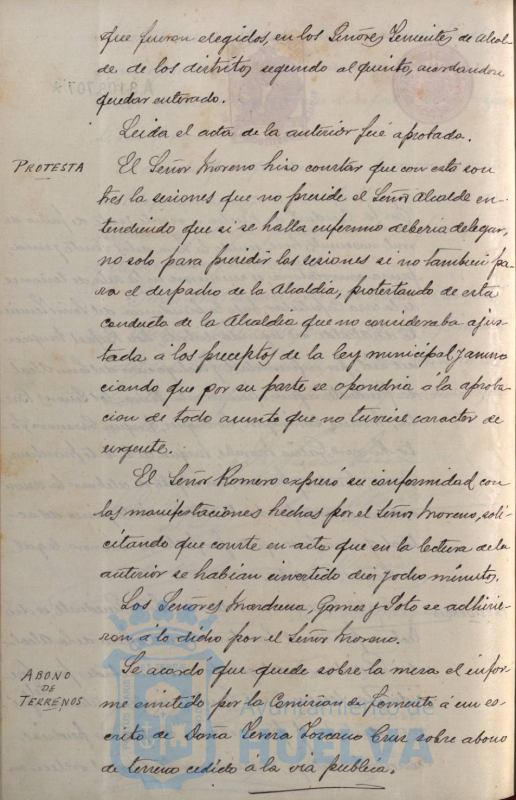 que fueron elegidos, en los Señores Tenientes de Alcal-
de de los distritos segundo al quinto, acordandose
quedar enterado.
Leida el acta de la anterior fué aprobada.
PROTESTA
El Señor Moreno hizo constar que con esta son
tres la sesiones que no preside el Señor Alcalde en-
tendiendo que si se halla enfermo deberia delegar,
no solo para presidir las sesiones si no tambien pa-
ra el despacho de la Alcaldia, protestando de esta
conducta de la Alcaldia que no consideraba ajus-
tada á los preceptos de la ley municipal y anun
ciando que por su parte se opondria á la aproba-
cion de todo asunto que no tuviese caracter de
urgente.
El Señor Romero expresó su conformidad con
las manifestaciones hechas por el Señor Moreno, soli-
citando que conste en acta que en la lectura de la
anterior se habían invertido diez y ocho minutos.
Los Señores Marchena, Gomez y Soto se adhirie-
ron á lo dicho por el Señor Moreno.
ABONO
DE
TERRENOS
Se acordó que quede sobre la mesa el infor-
me emitido por la Comision de fomento á un es-
crito de Doña Teresa Toscano Cruz sobre abono
de terreno cedido á la via publica.
Ayuntamiento de
HUELVA